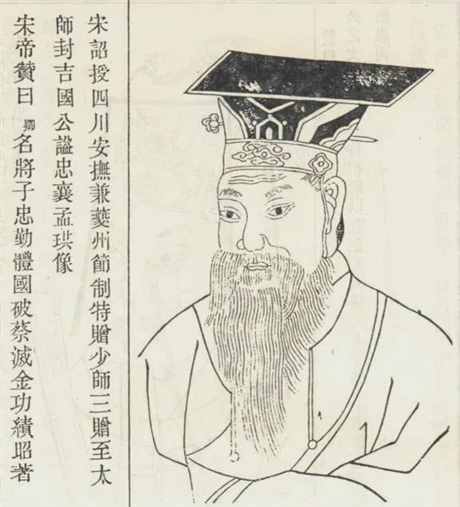 宋詔授四川安撫兼夔州節制特贈少師三贈至太
師封吉國公謚忠襄孟珙像
宋帝贊曰 卿名將子忠勤體國破蔡滅金功績昭著